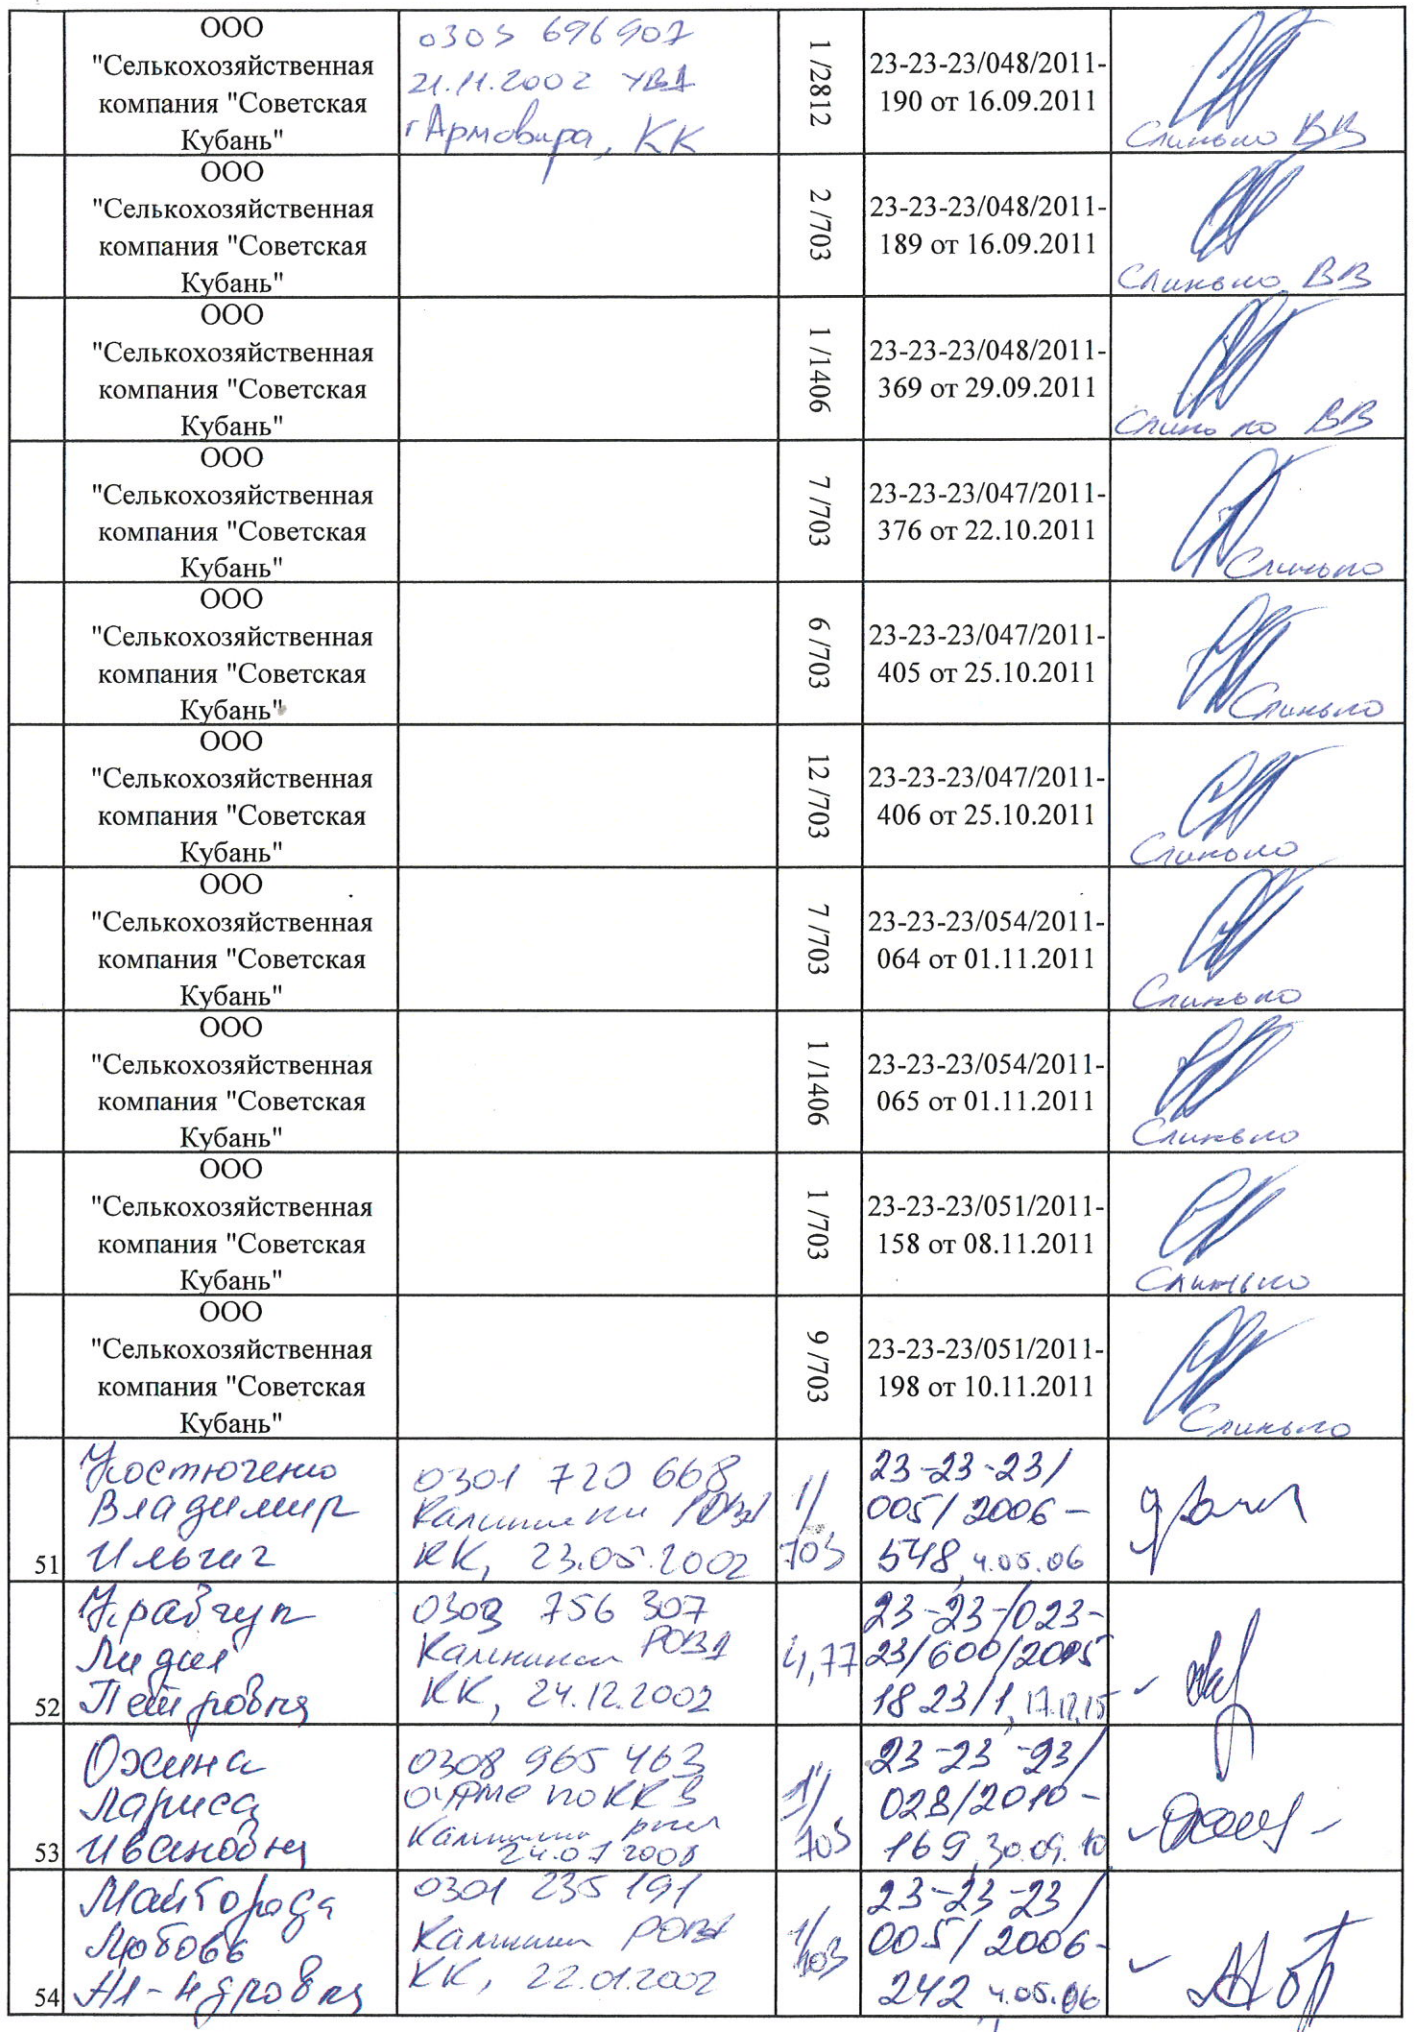 ООО
"Селькохозяйственная
компания "Советская
Кубань"
0303 696907
21.11.2002 УВД
г Армавира, КК
1 /2812
23-23-23/048/2011-
190 от 16.09.2011
Слинько ВВ
ООО
"Селькохозяйственная
компания "Советская
Кубань"
2 /703
23-23-23/048/2011-
189 от 16.09.2011
Слинько ВВ
ООО
"Селькохозяйственная
компания "Советская
Кубань"
1 /1406
23-23-23/048/2011-
369 от 29.09.2011
Слинько ВВ
ООО
"Селькохозяйственная
компания "Советская
Кубань"
7 /703
23-23-23/047/2011-
376 от 22.10.2011
Слинько
ООО
"Селькохозяйственная
компания "Советская
Кубань"
6 /703
23-23-23/047/2011-
405 от 25.10.2011
Слинько
ООО
"Селькохозяйственная
компания "Советская
Кубань"
12 /703
23-23-23/047/2011-
406 от 25.10.2011
Слинько
ООО
"Селькохозяйственная
компания "Советская
Кубань"
7 /703
23-23-23/054/2011-
064 от 01.11.2011
Слинько
ООО
"Селькохозяйственная
компания "Советская
Кубань"
1 /1406
23-23-23/054/2011-
065 от 01.11.2011
Слинько
ООО
"Селькохозяйственная
компания "Советская
Кубань"
1 /703
23-23-23/051/2011-
158 от 08.11.2011
Слинько
ООО
"Селькохозяйственная
компания "Советская
Кубань"
9 /703
23-23-23/051/2011-
198 от 10.11.2011
Слинько
51
Костюченко
Владимир
Ильич
0301 720 668
РОВД
КК, 23.05.2002
1/
703
23-23-23/
005/2006-
548, 4.05.06
52
Кравчук
Лидия
Петровна
0303 756 307
Калининск РОВД
КК, 24.12.2002
4,77
23-23-/023-
23/600/2015
1823/1, 17.12.15
53
Оженa
Лариса
Ивановна
0308 965 463
ОУФМС по КК в
24.07 2008
1/
703
23-23-23/
028/2010-
169, 30.09.10
54
Майборода
Любовь
Ал-ндровна
0301 235 191
Калинин РОВД
КК, 22.01.2002
1/
703
23-23-23/
005/2006-
242 4.05.06